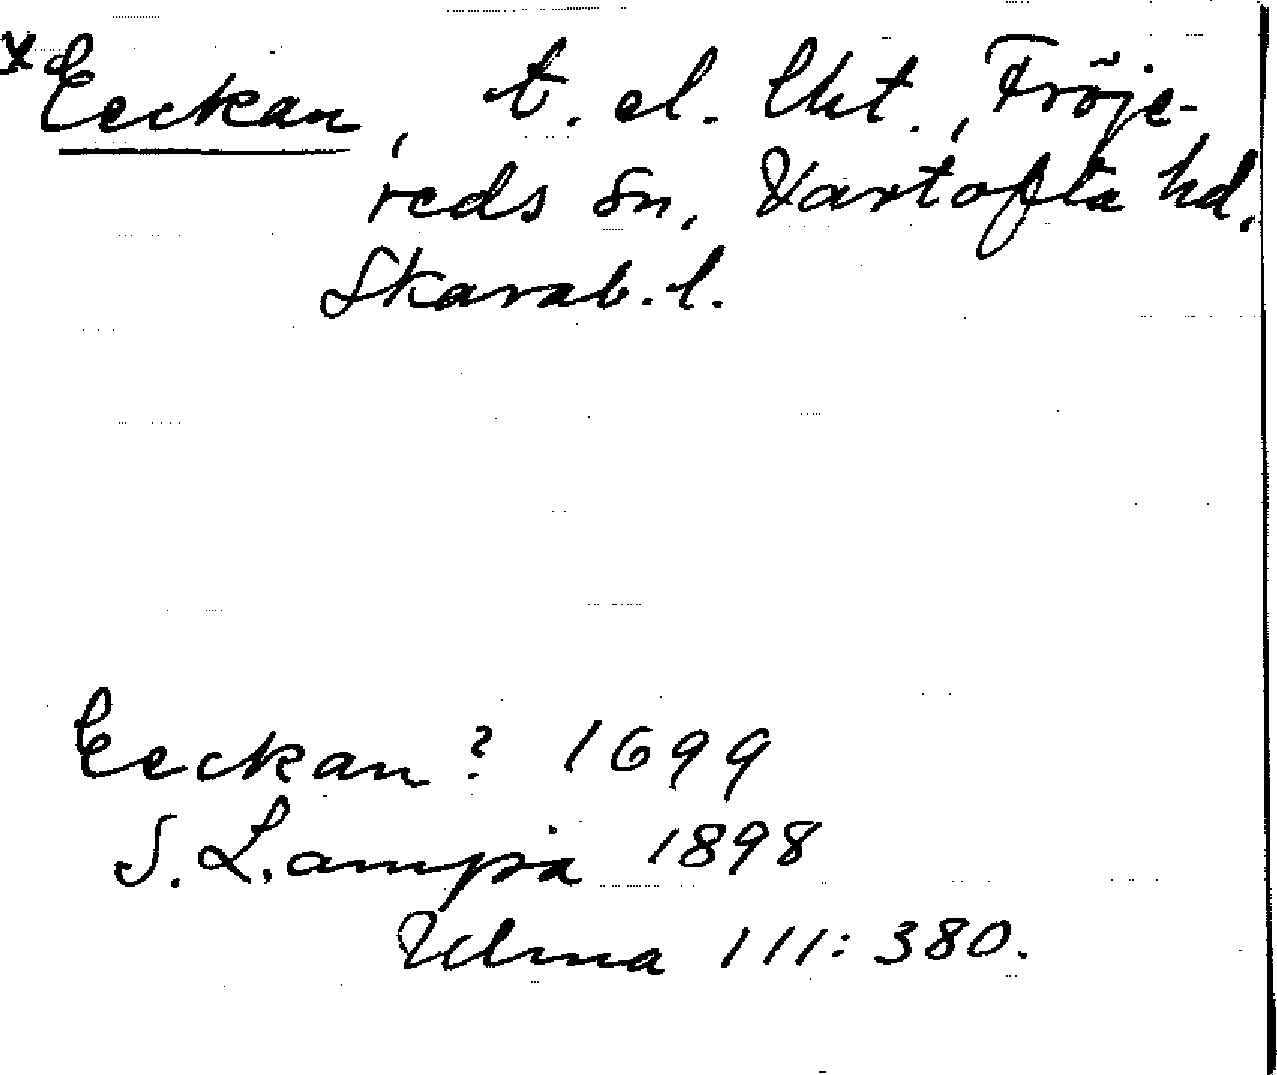 * Eeckan, t. el. lht., Fröje-
reds sn, Vartofta hd,
Skarab. l.
Eeckan? 1699
S. Lampa 1898
Ulma 111:380.